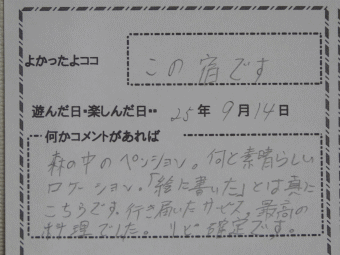 よかったよココ
この宿です
遊んだ日・楽しんだ日・・ 25年 9月 14日
何かコメントがあれば
森の中のペンション。何と素晴らしい
ロケーション。「絵に書いた」とは真に
こちらです。行き届いたサービス。最高の
料理でした。リピ確定です。